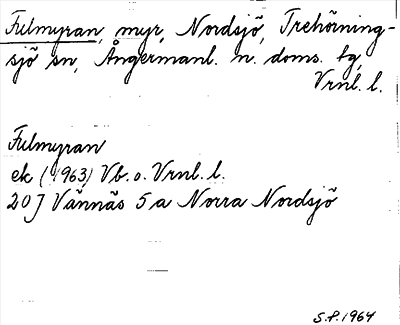 Fulmyran, myr, Nordsjö, Trehörning-
sjö sn, Ångermanl. n. doms. tg,
Vrnl. l.
Fulmyran
ek (1963) Vb. o. Vrnl. l.
20 J Vännäs 5 a Norra Nordsjö
S.P. 1964